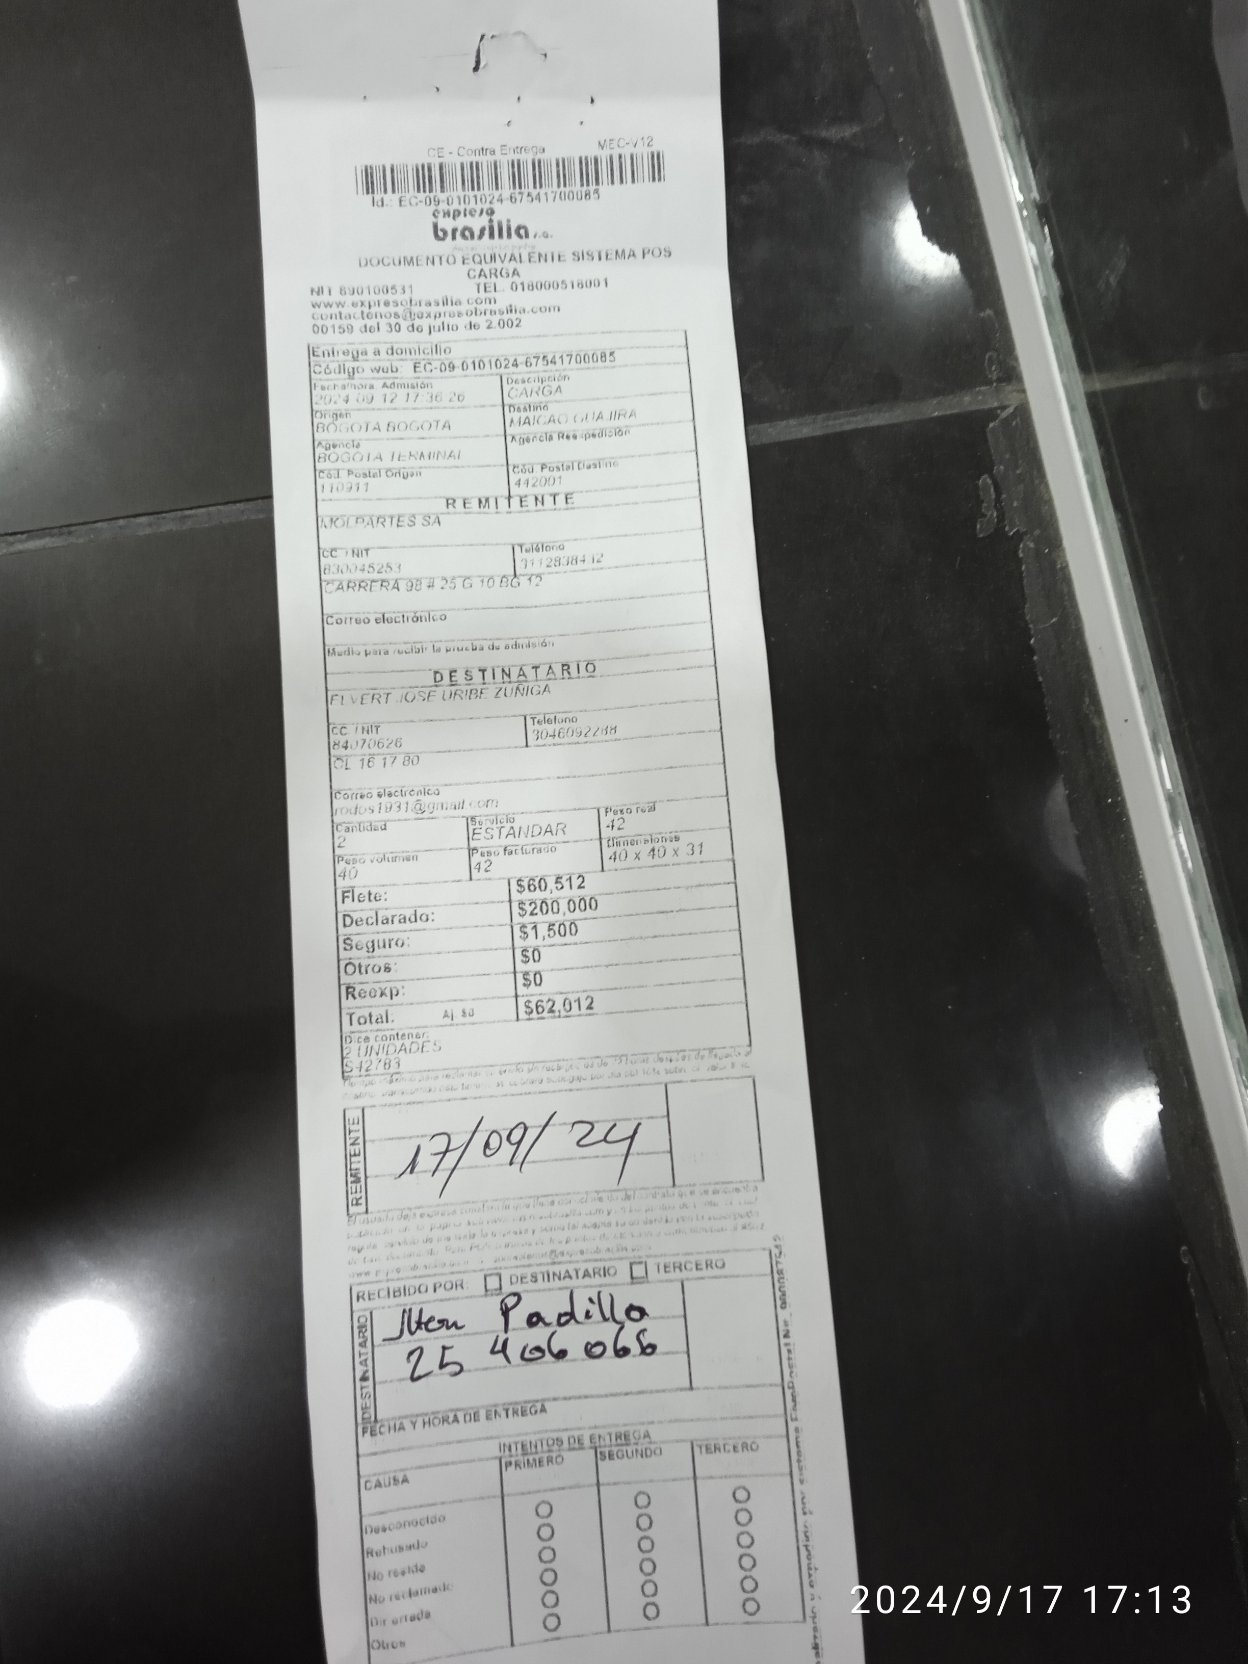 CE - Contra Entrega MEC-V12
Id.: EC-09-0101024-67541700085
expreso
brasilia s.a.
DOCUMENTO EQUIVALENTE SISTEMA POS
CARGA
NIT 890100531 TEL. 018000518001
www.expresobrasilia.com
contactenos@expresobrasilia.com
00159 del 30 de julio de 2.002
Entrega a domicilio
Código web: EC-09-0101024-67541700085
Fecha/hora Admisión Descripción
2024 09 12 17:36 26 CARGA
Origen Destino
BOGOTA BOGOTA MAICAO GUAJIRA
Agencia Agencia Reexpedición
BOGOTA TERMINAL
Cód. Postal Origen Cód. Postal Destino
110911 442001
REMITENTE
MOLPARTES SA
CC / NIT Teléfono
830045253 3112838412
CARRERA 98 # 25 G 10 BG 12
Correo electrónico
Medio para recibir la prueba de admisión
DESTINATARIO
ELVERT JOSE URIBE ZUÑIGA
CC / NIT Teléfono
84070626 3046092288
CL 16 17 80
Correo electrónico
rodos1931@gmail.com
Cantidad Servicio Peso real
2 ESTANDAR 42
Peso volumen Peso facturado Dimensiones
40 42 40 x 40 x 31
Flete: $60,512
Declarado: $200,000
Seguro: $1,500
Otros: $0
Reexp: $0
Total: Aj $0 $62,012
Dice contener:
2 UNIDADES
S42783
REMITENTE
17/09/24
RECIBIDO POR: DESTINATARIO TERCERO
DESTINATARIO
Padilla
25 406 066
FECHA Y HORA DE ENTREGA
INTENTOS DE ENTREGA
CAUSA PRIMERO SEGUNDO TERCERO
Desconocido
Rehusado
No reside
No reclamado
Dir errada
Otros
2024/9/17 17:13